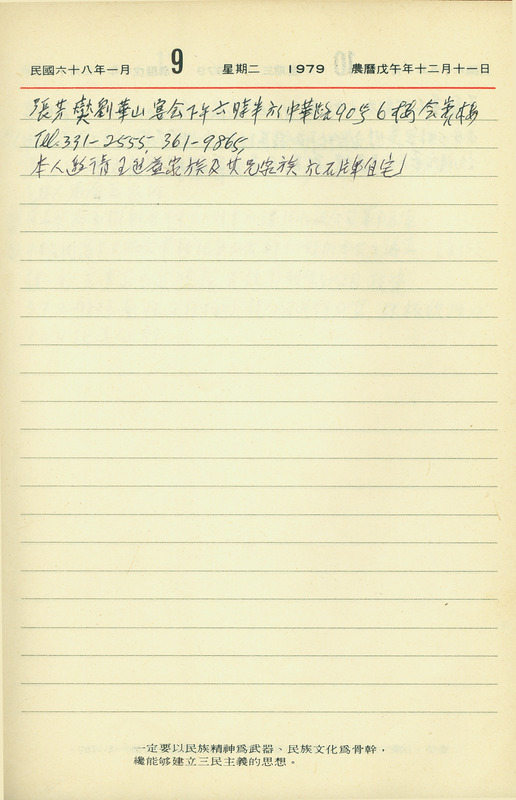 民國六十八年一月 9 星期二 1979 農曆戊午年十二月十一日
張芳燮劉華山宴会下午六時半於中華路90号6樓会賓樓
Tel. 331-2555, 361-9865,
本人邀請王進益家族及其兄家族於石牌自宅
一定要以民族精神爲武器、民族文化爲骨幹，
纔能够建立三民主義的思想。